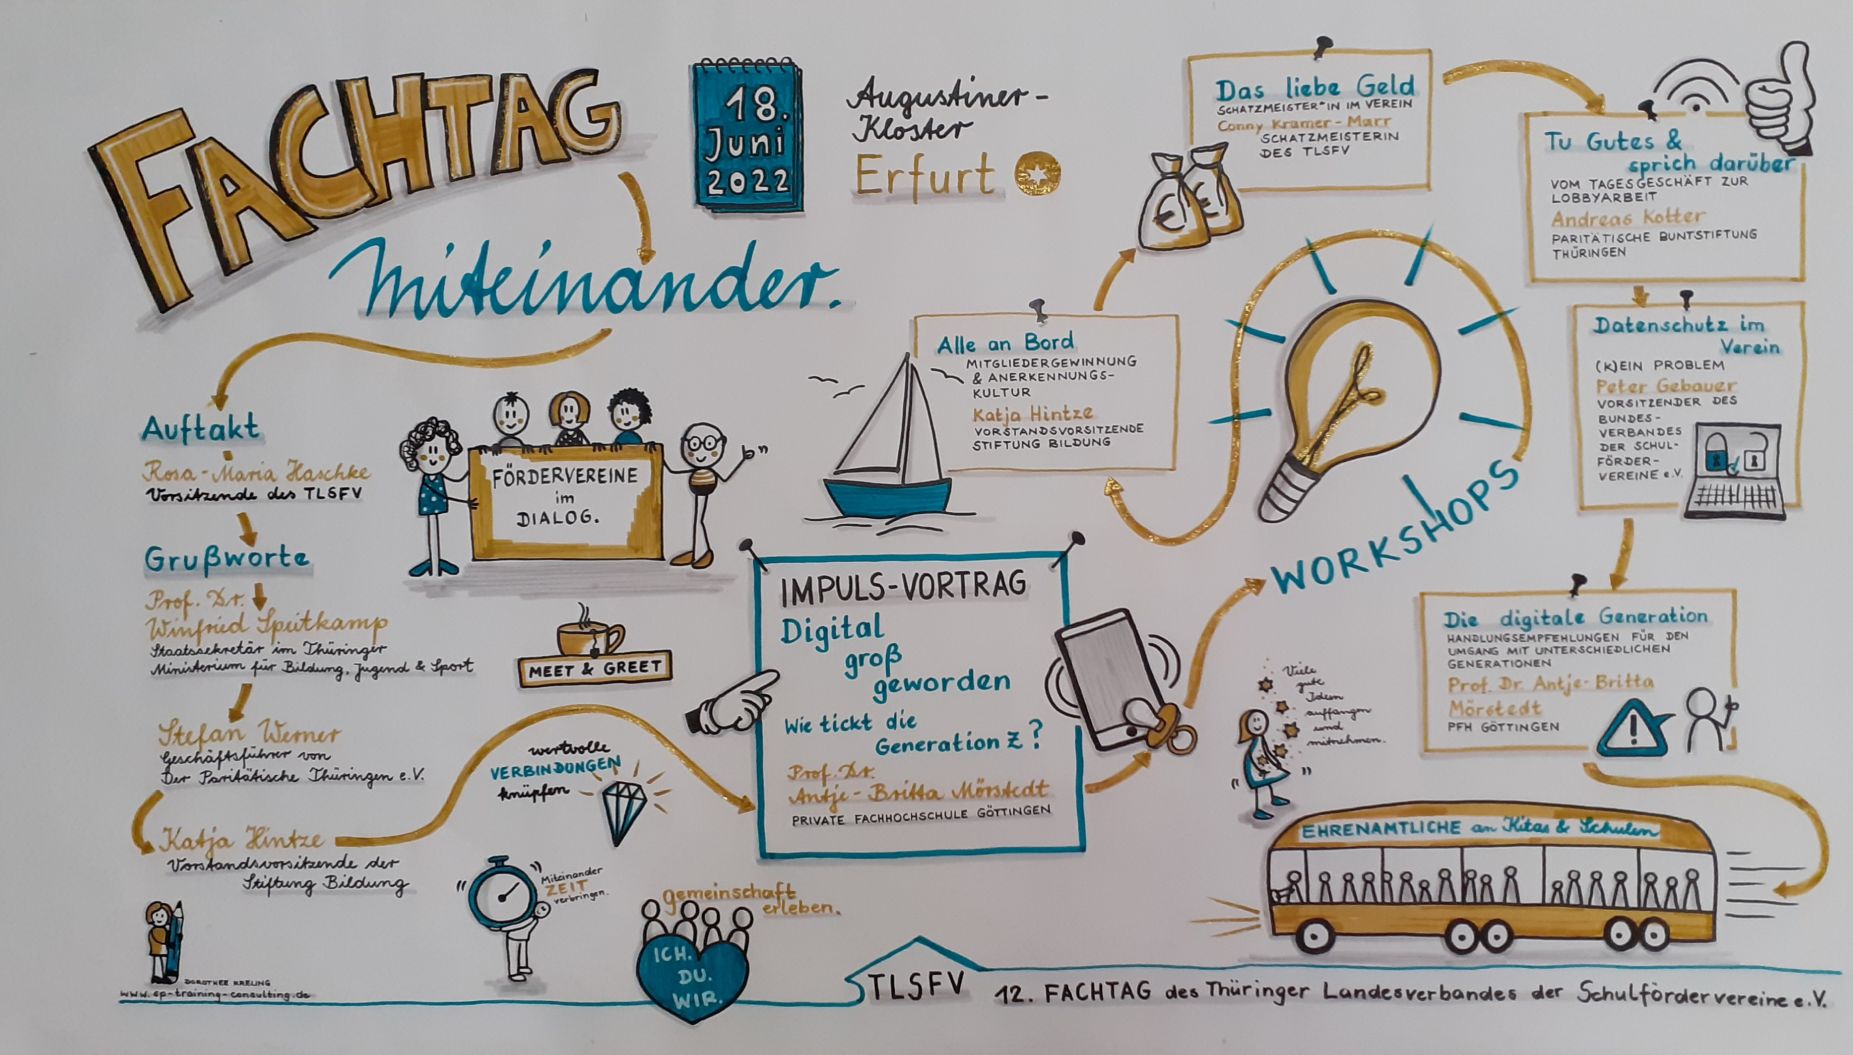 FACHTAG
Miteinander.
18.
Juni
2022
Augustiner-
Kloster
Erfurt
Auftakt
Rosa-Maria Haschke
Vorsitzende des TLSFV
Grußworte
Prof. Dr.
Winfried Speitkamp
Staatssekretär im Thüringer
Ministerium für Bildung, Jugend & Sport
Stefan Werner
Geschäftsführer von
Der Paritätische Thüringen e.V.
Katja Hintze
Vorstandsvorsitzende der
Stiftung Bildung
FÖRDERVEREINE
im
DIALOG.
MEET & GREET
wertvolle
VERBINDUNGEN
knüpfen
Miteinander
ZEIT
verbringen.
gemeinschaft
erleben.
ICH.
DU.
WIR.
IMPULS-VORTRAG
Digital
groß
geworden
Wie tickt die
Generation Z?
Prof. Dr.
Antje-Britta Mörstedt
PRIVATE FACHHOCHSCHULE GÖTTINGEN
WORKSHOPS
Alle an Bord
MITGLIEDERGEWINNUNG
& ANERKENNUNGS-
KULTUR
Katja Hintze
VORSTANDSVORSITZENDE
STIFTUNG BILDUNG
Das liebe Geld
SCHATZMEISTER*IN IM VEREIN
Conny Kramer-Marr
SCHATZMEISTERIN
DES TLSFV
Tu Gutes &
sprich darüber
VOM TAGESGESCHÄFT ZUR
LOBBYARBEIT
Andreas Kotter
PARITÄTISCHE BUNTSTIFTUNG
THÜRINGEN
Datenschutz im
Verein
(K)EIN PROBLEM
Peter Gebauer
VORSITZENDER DES
BUNDES-
VERBANDES
DER SCHUL-
FÖRDER-
VEREINE e.V.
Die digitale Generation
HANDLUNGSEMPFEHLUNGEN FÜR DEN
UMGANG MIT UNTERSCHIEDLICHEN
GENERATIONEN
Prof. Dr. Antje-Britta
Mörstedt
PFH GÖTTINGEN
Viele
gute
Ideen
auffangen
und
mitnehmen.
EHRENAMTLICHE an Kitas & Schulen
DOROTHEE KRELING
www.sp-training-consulting.de
TLSFV
12. FACHTAG des Thüringer Landesverbandes der Schulfördervereine e.V.